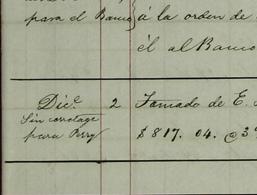 para el Banco} á la orden de
él al Banco
Dice. 2 Tomado de E.
Sin corretage
para Perry $817.04. @ 3